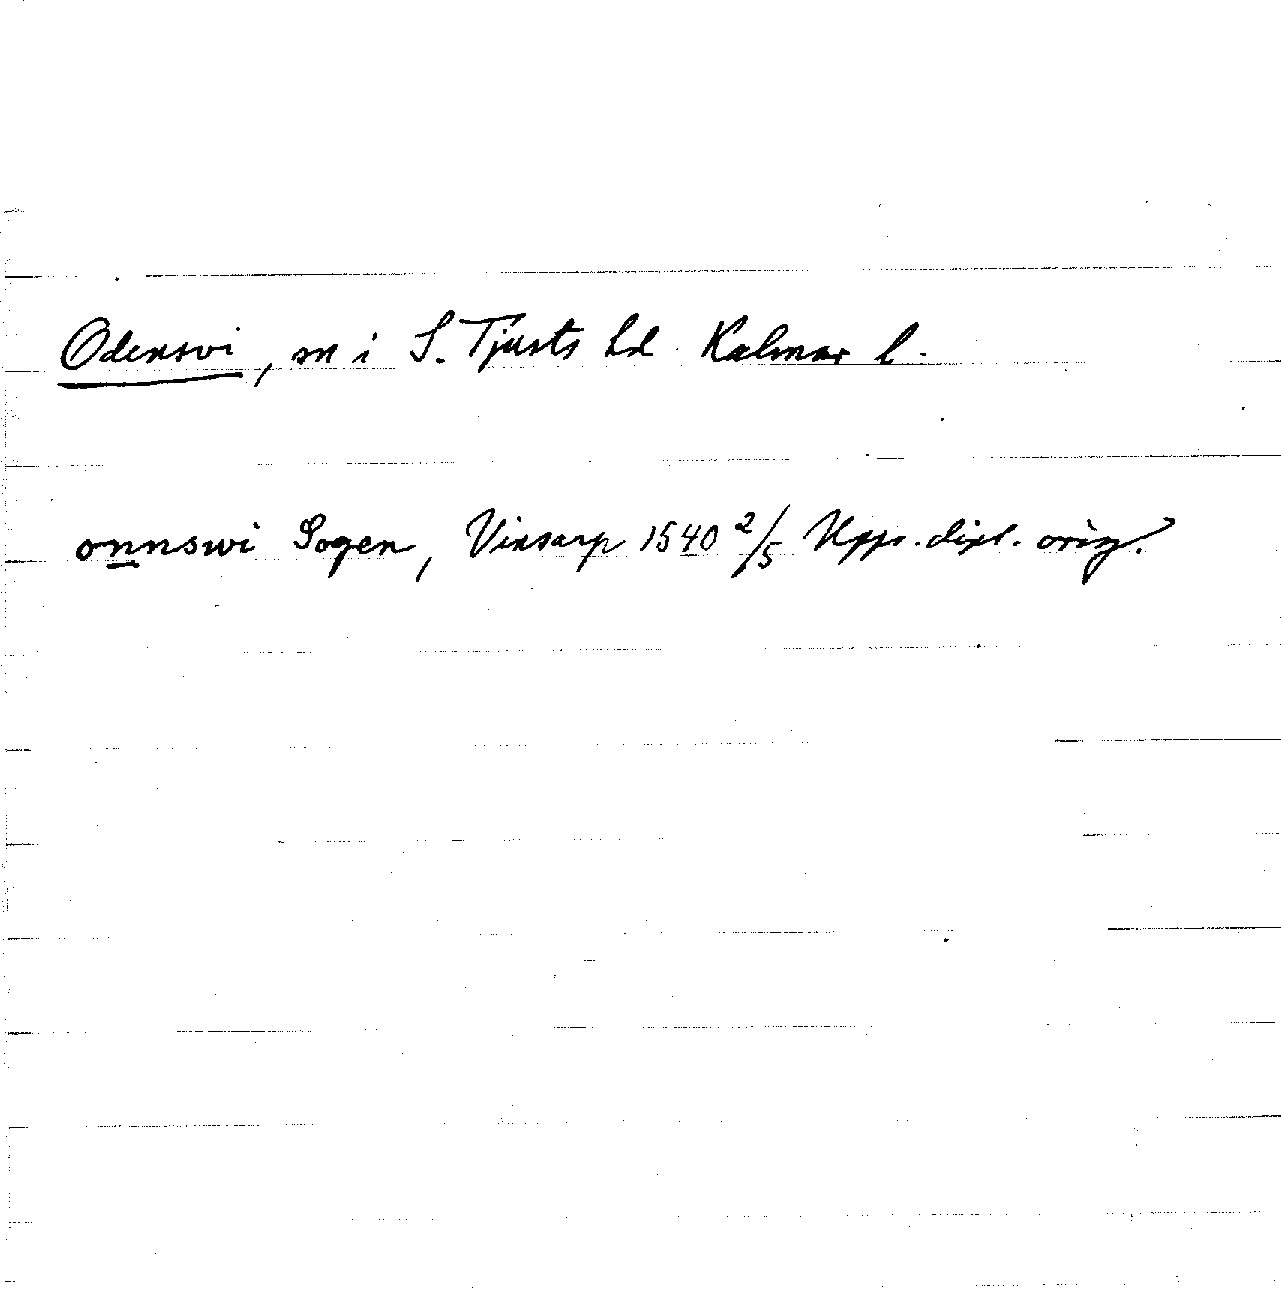 Odensvi, sn i S. Tjusts hd Kalmar l.
onnswi Sogen, Vinsarp 1540 2/5 Upps. dipl. orig.